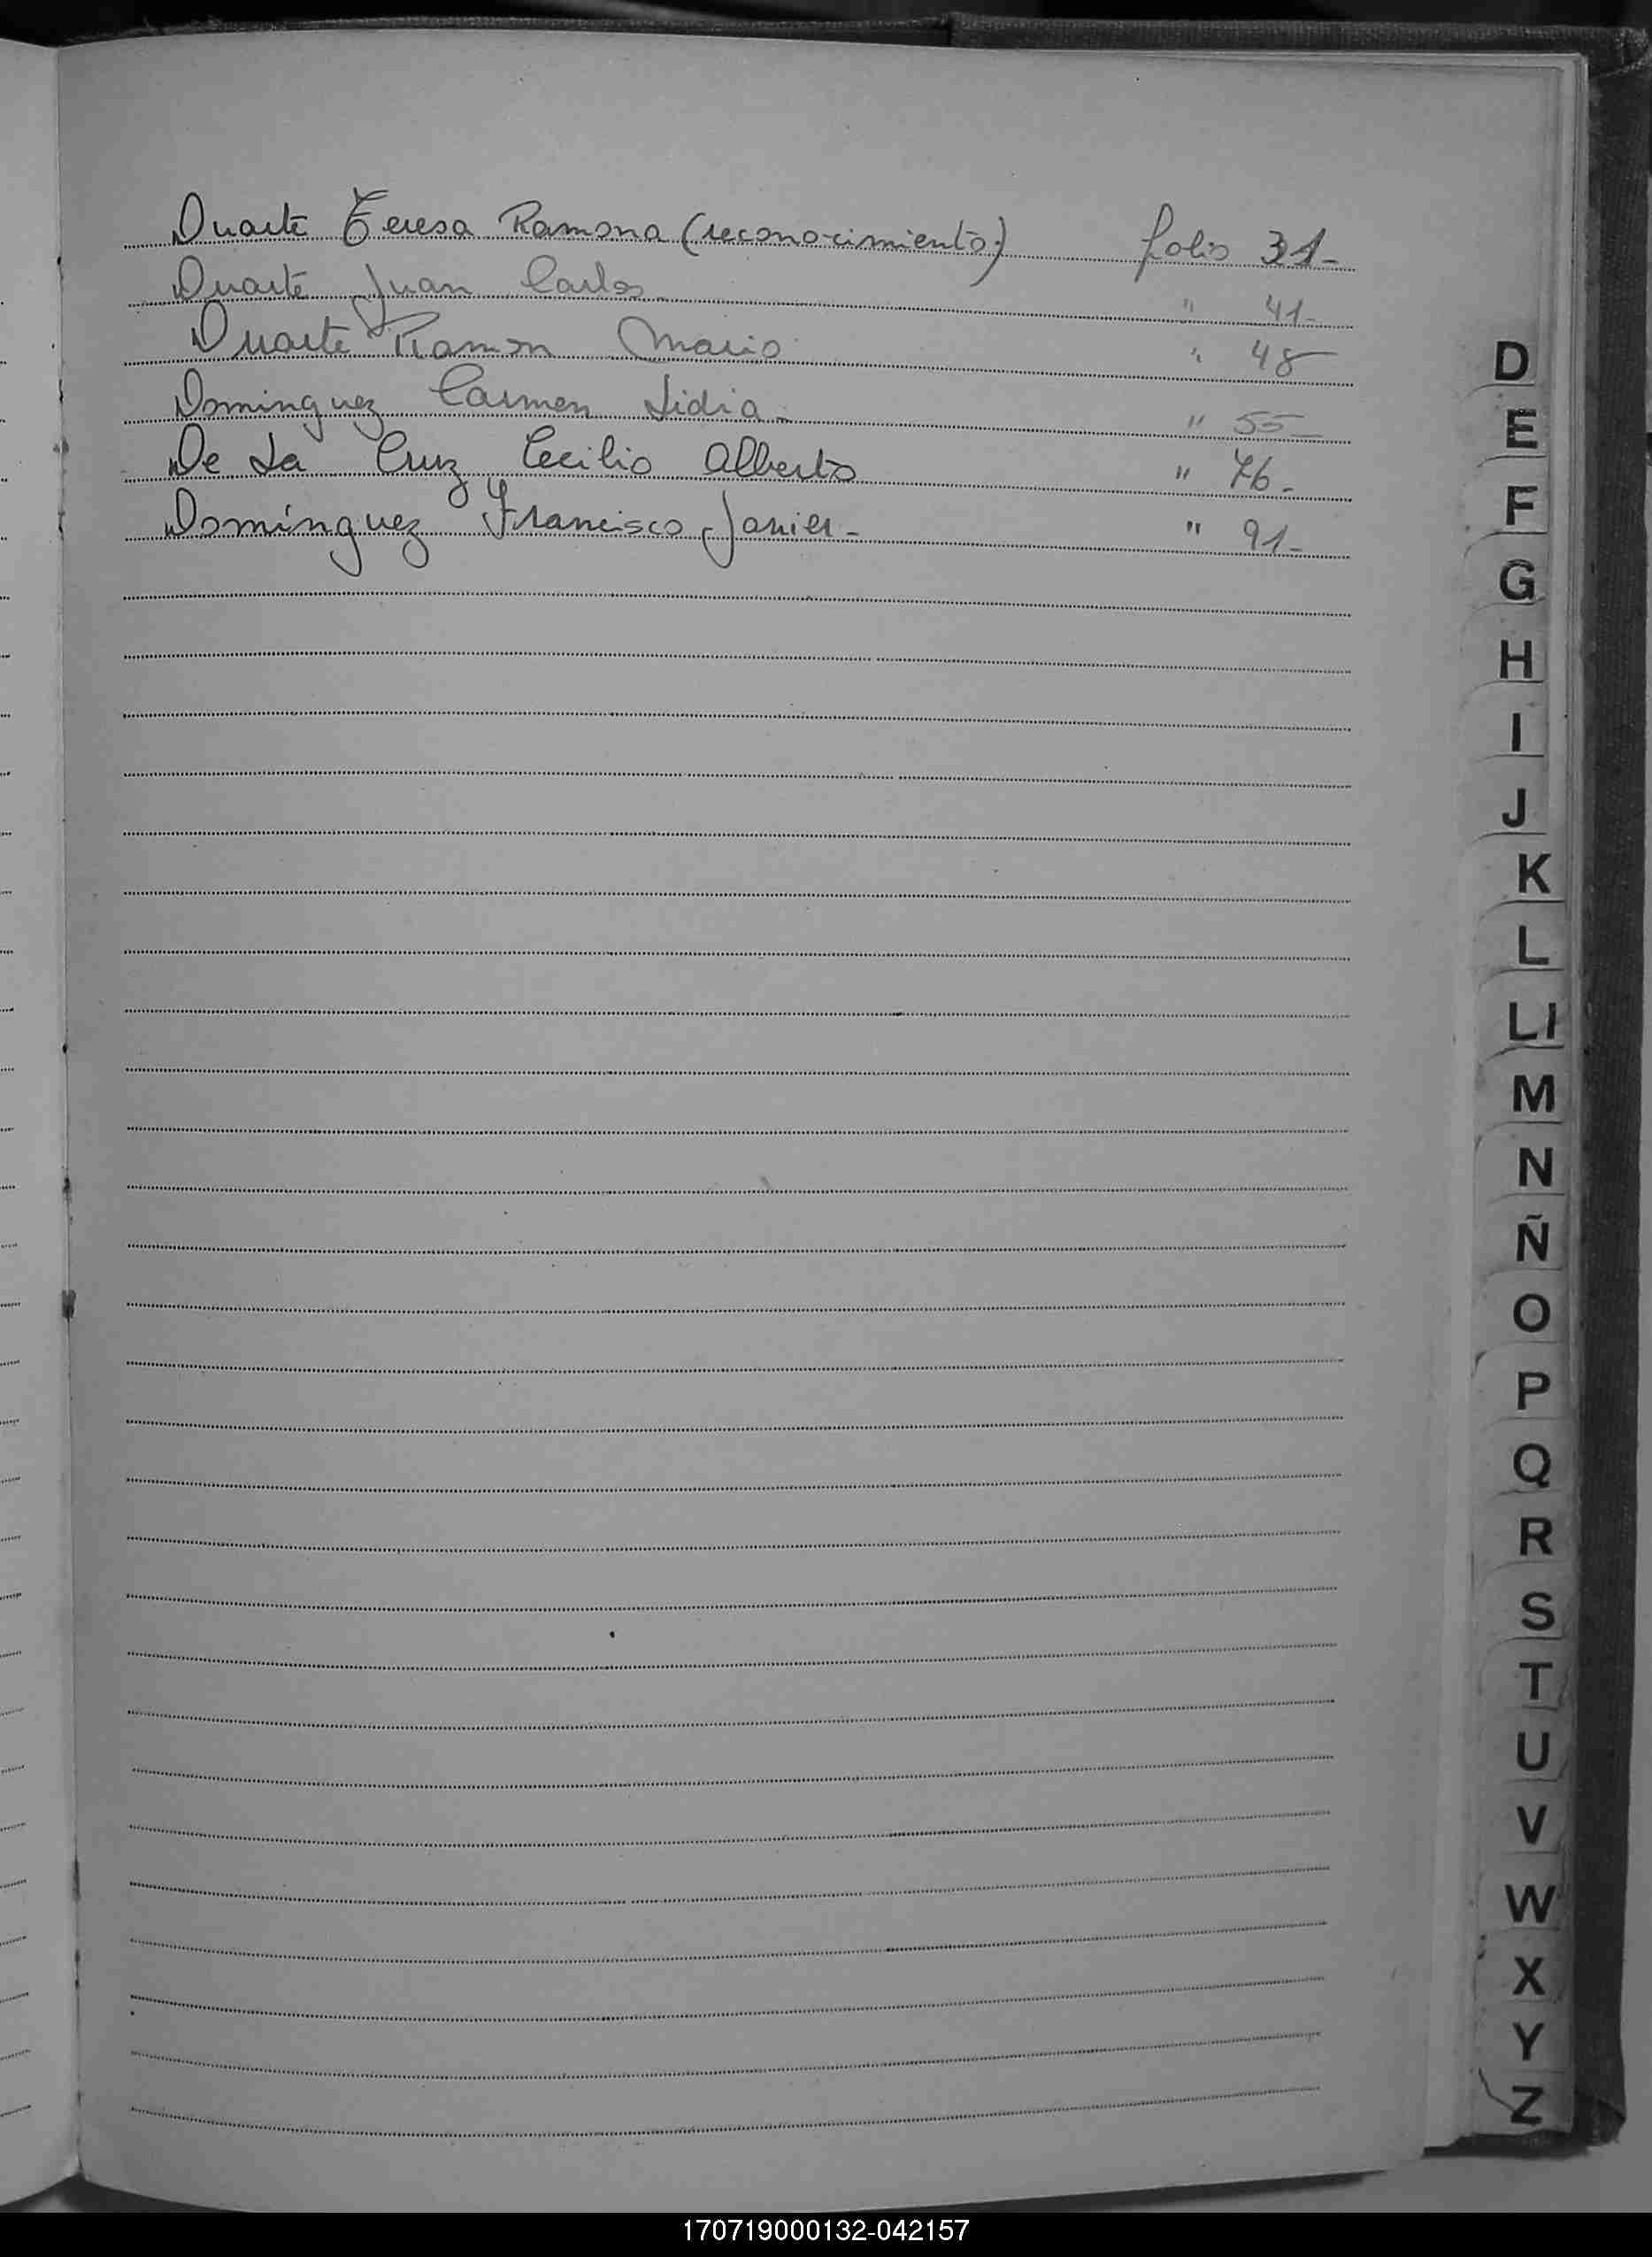 Duarte Teresa Ramona (reconocimiento.) folio 31-
Duarte Juan Carlos " 41-
Duarte Ramon Mario " 48-
Dominguez Carmen Lidia- " 55-
De La Cruz Cecilio Alberto " 76-
Domínguez Francisco Javier- " 91-
D
E
F
G
H
I
J
K
L
Ll
M
N
Ñ
O
P
Q
R
S
T
U
V
W
X
Y
Z
170719000132-042157